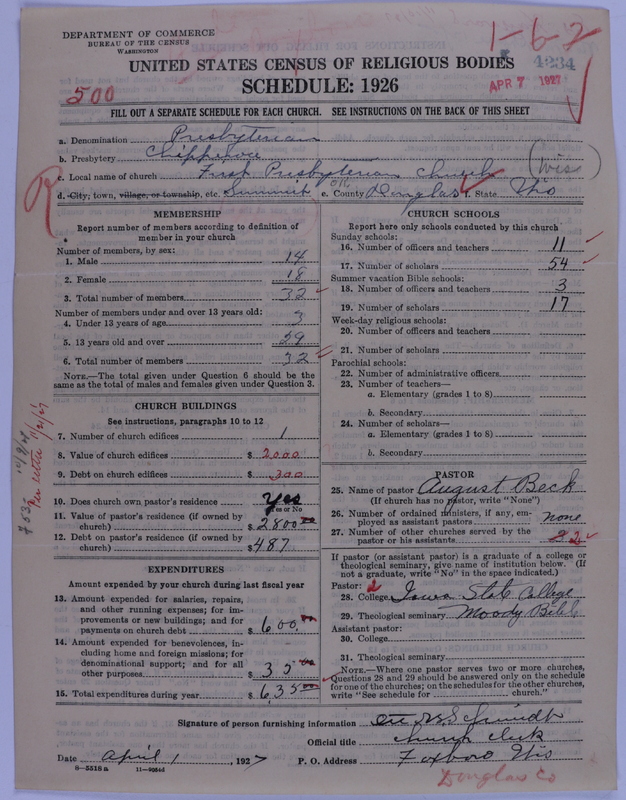 DEPARTMENT OF COMMERCE
BUREAU OF THE CENSUS
WASHINGTON
1-6-2
4234
APR 7 1927
UNITED STATES CENSUS OF RELIGIOUS BODIES
SCHEDULE: 1926
500
FILL OUT A SEPARATE SCHEDULE FOR EACH CHURCH. SEE INSTRUCTIONS ON THE BACK OF THIS SHEET
a. Denomination Presbyterian
b. Presbytery Chippewa
c. Local name of church First Presbyterian Church (Wis)
d. City, town, village, or township, etc. Summit e. County Douglas f. State Wis
MEMBERSHIP
Report number of members according to definition of
member in your church
Number of members, by sex:
1. Male 14
2. Female 18
3. Total number of members 32
Number of members under and over 13 years old:
4. Under 13 years of age 3
5. 13 years old and over 29
6. Total number of members 32
NOTE.—The total given under Question 6 should be
same as the total of males and females given under Question 3.
CHURCH BUILDINGS
See instructions, paragraphs 10 to 12
7. Number of church edifices 1
8. Value of church edifices $ 2000
9. Debt on church edifices $ 300
10. Does church own pastor's residence Yes
Yes or No
11. Value of pastor's residence (if owned by
church) $ 2800.00
12. Debt on pastor's residence (if owned by
church) $ 487
EXPENDITURES
Amount expended by your church during last fiscal year
13. Amount expended for salaries, repairs,
and other running expenses; for im-
provements or new buildings; and for
payments on church debt $ 600.00
14. Amount expended for benevolences, in-
cluding home and foreign missions; for
denominational support; and for all
other purposes $ 35.00
15. Total expenditures during year $ 635.00
CHURCH SCHOOLS
Report here only schools conducted by this church
Sunday schools:
16. Number of officers and teachers 11
17. Number of scholars 54
Summer vacation Bible schools:
18. Number of officers and teachers 3
19. Number of scholars 17
Week-day religious schools:
20. Number of officers and teachers
21. Number of scholars
Parochial schools:
22. Number of administrative officers
23. Number of teachers—
a. Elementary (grades 1 to 8)
b. Secondary
24. Number of scholars—
a. Elementary (grades 1 to 8)
b. Secondary
PASTOR
25. Name of pastor August Beck
(If church has no pastor, write "None")
26. Number of ordained ministers, if any, em-
ployed as assistant pastors none
27. Number of other churches served by the
pastor or his assistants 2
If pastor (or assistant pastor) is a graduate of a college or
theological seminary, give name of institution below. (If
not a graduate, write "No" in the space indicated.)
Pastor: 2
28. College Iowa State College
29. Theological seminary Moody Bible
Assistant pastor:
30. College
31. Theological seminary
NOTE.—Where one pastor serves two or more churches,
Questions 28 and 29 should be answered only on the schedule
for one of the churches; on the schedules for the other churches,
write "See schedule for church."
Signature of person furnishing information Schmidt
Official title Church Clerk
Date April 1, 1927 P. O. Address Foxboro Wis
8—5518a 11—90646
Douglas Co